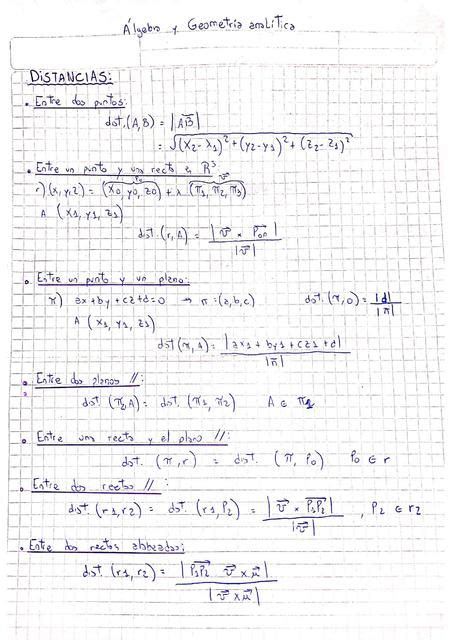 Álgebra y Geometría analítica
DISTANCIAS:
• Entre dos puntos:
dist.(A,B) = |AB|
= √(x2-x1)² + (y2-y1)² + (z2-z1)²
• Entre un punto y una recta en R³
r) (x,y,z) = (x0,y0,z0) + λ (π1, π2, π3)
A (x1, y1, z1)
dist. (r,A) = |v × P0A| / |v|
• Entre un punto y un plano:
π) ax+by+cz+d=0 → n=(a,b,c) dist.(π,0) = |d| / |n|
A (x1, y1, z1)
dist(π,A) = |ax1 + by1 + cz1 + d| / |n|
• Entre dos planos //:
dist. (π2,A) = dist. (π1, π2) A ∈ π1
• Entre una recta y el plano //:
dist. (π,r) = dist. (π, P0) P0 ∈ r
• Entre dos rectas //:
dist. (r1,r2) = dist. (r1,P2) = |v × P1P2| / |v| , P2 ∈ r2
• Entre dos rectas alabeadas:
dist. (r1, r2) = |P1P2 v × u| / |v × u|